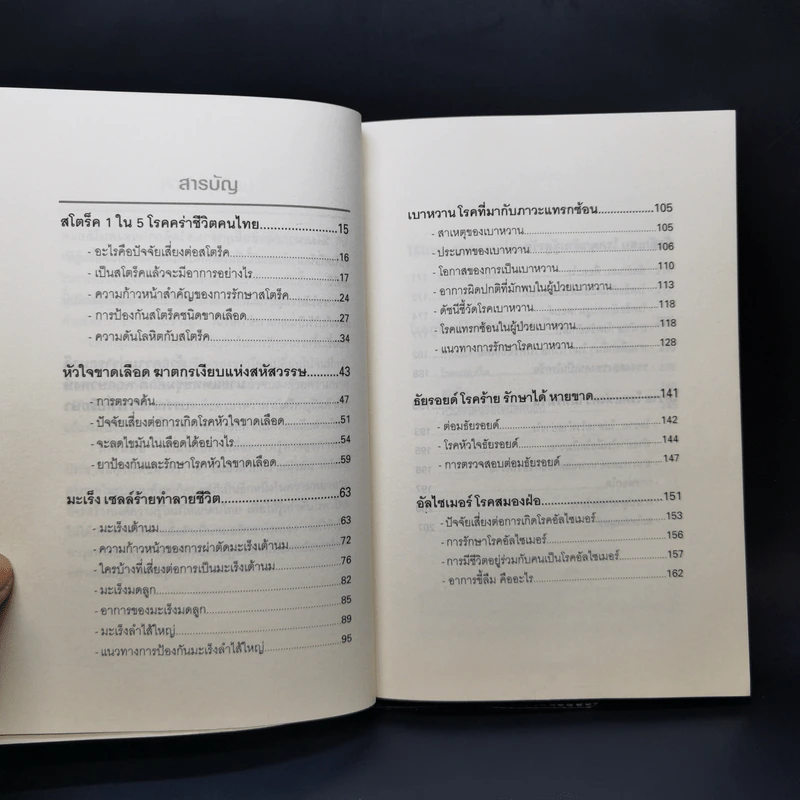 สารบัญ
สโตร็ค 1 ใน 5 โรคคร่าชีวิตคนไทย....................15
- อะไรคือปัจจัยเสี่ยงต่อสโตร็ค....................16
- เป็นสโตร็คแล้วจะมีอาการอย่างไร....................17
- ความก้าวหน้าสำคัญของการรักษาสโตร็ค....................24
- การป้องกันสโตร็คชนิดขาดเลือด....................27
- ความดันโลหิตกับสโตร็ค....................34
หัวใจขาดเลือด ฆาตกรเงียบแห่งสหัสวรรษ....................43
- การตรวจค้น....................47
- ปัจจัยเสี่ยงต่อการเกิดโรคหัวใจขาดเลือด....................51
- จะลดไขมันในเลือดได้อย่างไร....................54
- ยาป้องกันและรักษาโรคหัวใจขาดเลือด....................59
มะเร็ง เซลล์ร้ายทำลายชีวิต....................63
- มะเร็งเต้านม....................63
- ความก้าวหน้าของการผ่าตัดมะเร็งเต้านม....................72
- ใครบ้างที่เสี่ยงต่อการเป็นมะเร็งเต้านม....................76
- มะเร็งมดลูก....................82
- อาการของมะเร็งมดลูก....................85
- มะเร็งลำไส้ใหญ่....................89
- แนวทางการป้องกันมะเร็งลำไส้ใหญ่....................95
เบาหวาน โรคที่มากับภาวะแทรกซ้อน....................105
- สาเหตุของเบาหวาน....................105
- ประเภทของเบาหวาน....................106
- โอกาสของการเป็นเบาหวาน....................110
- อาการผิดปกติที่มักพบในผู้ป่วยเบาหวาน....................113
- ดัชนีชี้วัดโรคเบาหวาน....................118
- โรคแทรกซ้อนในผู้ป่วยเบาหวาน....................118
- แนวทางการรักษาโรคเบาหวาน....................128
ธัยรอยด์ โรคร้าย รักษาได้ หายขาด....................141
- ต่อมธัยรอยด์....................142
- โรคหัวใจธัยรอยด์....................144
- การตรวจสอบต่อมธัยรอยด์....................147
อัลไซเมอร์ โรคสมองฝ่อ....................151
- ปัจจัยเสี่ยงต่อการเกิดโรคอัลไซเมอร์....................153
- การรักษาโรคอัลไซเมอร์....................156
- การมีชีวิตอยู่ร่วมกับคนเป็นโรคอัลไซเมอร์....................157
- อาการขี้ลืม คืออะไร....................162